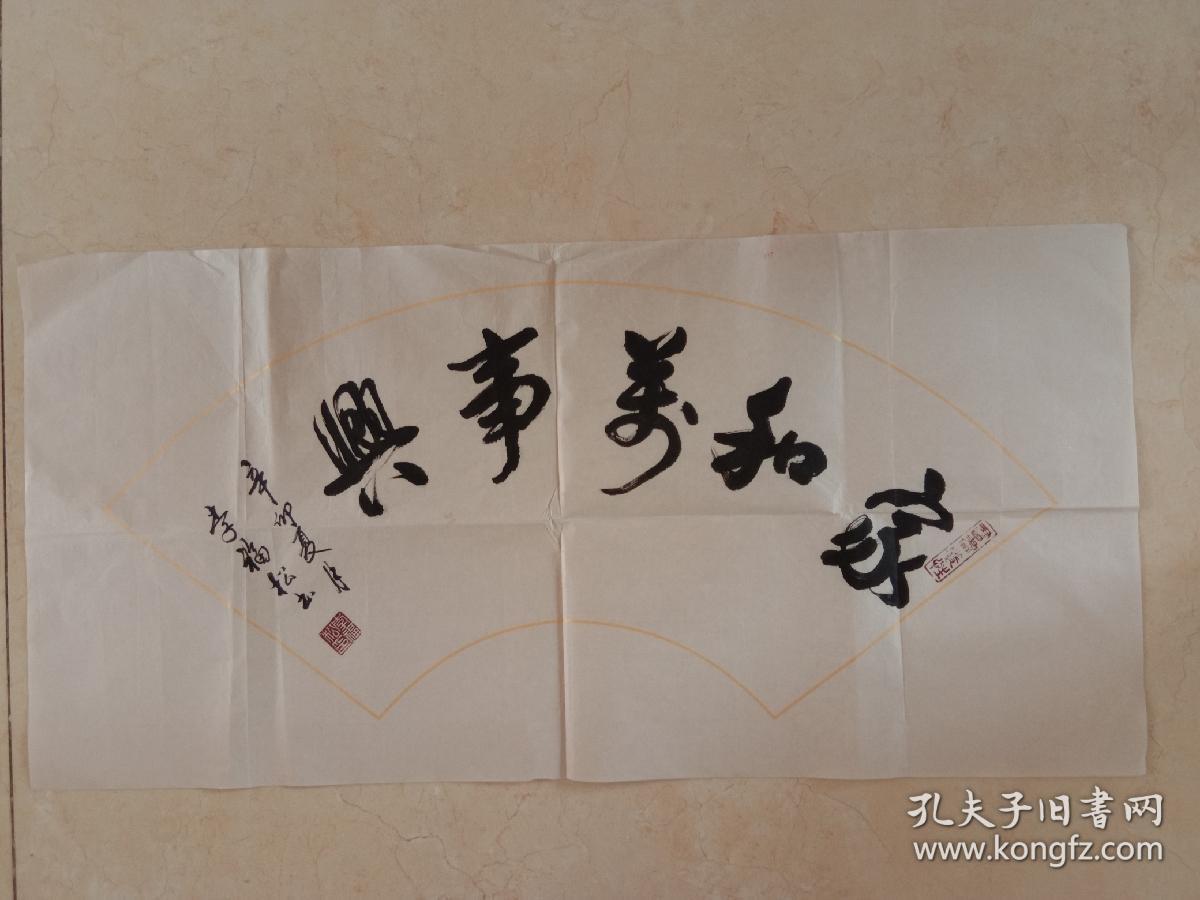 家和萬事興
辛卯夏月
李福松书
孔夫子旧書网
www.kongfz.com